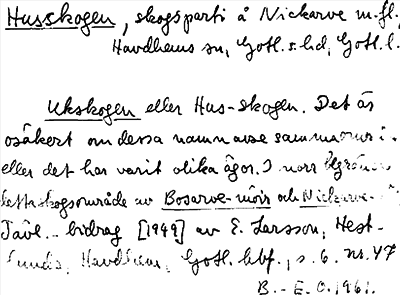 Husskogen, skogsparti å Nickarve m.fl.,
Havdhems sn, Gotl. s. hd, Gotl. l.
Ukskogen eller Hus-skogen. Det är
osäkert om dessa namn avse samma
eller det har varit olika ägor. I norr
detta skogsområde av Bosarve-möir och Nickarve-
Tävl.-bidrag [1949] av E. Larsson, Hest-
Havdhem, Gotl. hbf., s. 6. nr. 47
B.-E. O. 1961.